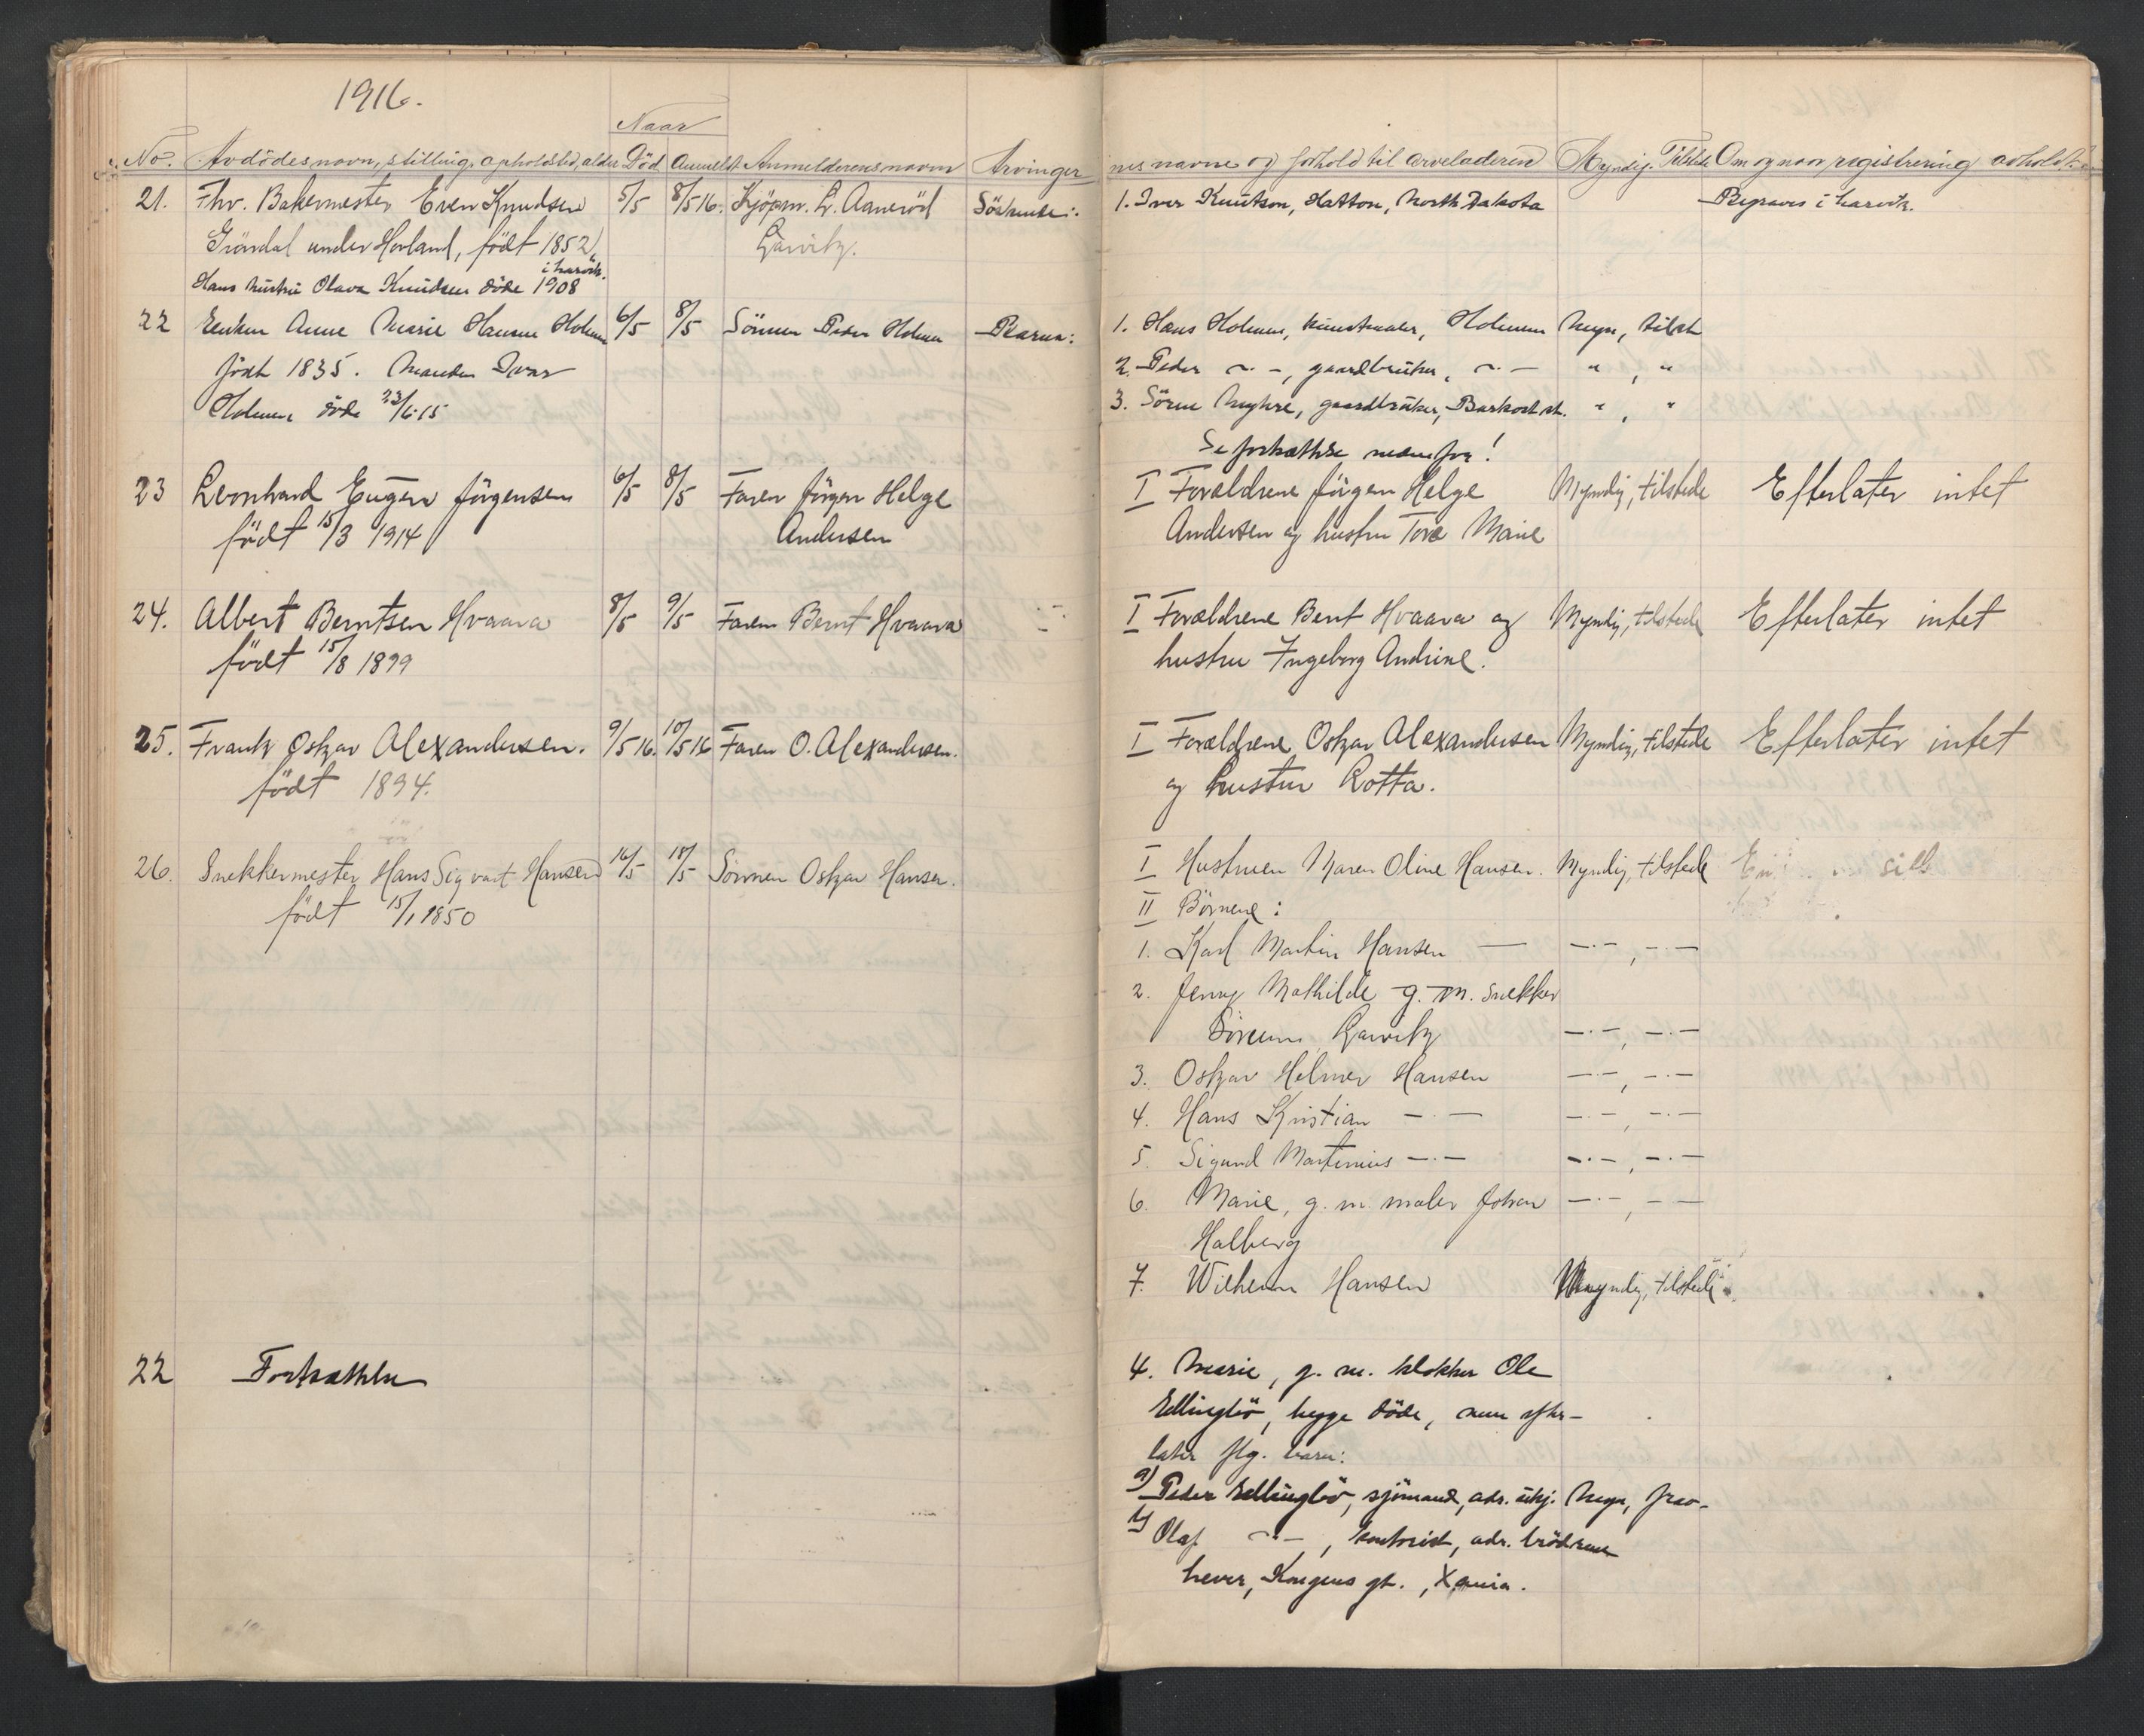 1916.
Naar
No. Avdødes navn, stilling, opholdsted, alder Död Anmeldt Anmelderens navn Arvinger
nes navne og forhold til arveladeren Myndig. Tilstede Om og naar registrering avholdt
21. Fhv. Bakermester Even Knudsen 5/5 8/5 16. Kjöpm. L. Aaneröd Söskende: 1. Iver Knutson, Hatton, North Dakota Begraves i Larvik.
Gröndal under Hovland, födt 1852, Larvik.
i Larvik.
Hans hustru Olava Knudsen döde 1908
22 Enken Anne Marie Hansen Holmen 6/5 8/5 Sönnen Peder Holmen Barna: 1. Hans Holmen, Holmen Myn, tilst
födt 1835. Manden Ivar 2. Peder -·-, gaardbruker, -·- " , "
Holmen döde 23/6 15 3. Sören Myhre, gaardbruker, " , "
Se fortsættelse nedenfor!
23 Leonhard Eugen Jörgensen 6/5 8/5 Faren Jörgen Helge I Forældrene Jörgen Helge Myndig, tilstede Efterlater intet
födt 15/3 1914 Andersen Andersen og hustru Tora Marie
24. Albert Berntsen Hvaara 8/5 9/5 Faren Bernt Hvaara I Forældrene Bernt Hvaara og Myndig, tilstede Efterlater intet
födt 15/8 1899 hustru Ingeborg Andrine.
25. Frank Oskar Alexandersen. 9/5 16. 10/5 16 Faren O. Alexandersen. I Forældrene Oskar Alexandersen Myndig, tilstede Efterlater intet
födt 1894. og hustru Lotta.
26. Snekkermester Hans Sigvart Hansen 16/5 18/5 Sönnen Oskar Hansen. I Hustruen Maren Oline Hansen. Myndig, tilstede
födt 15/1 1850 II Börnene:
1. Karl Martin Hansen — -·-, -·-
2. Jenny Mathilde g. m. snekker
Larvik -·-, -·-
3. Oskar Helmer Hansen -·-, -·-
4. Hans Kristian -·- -·-, -·-
5. Sigurd Martinius -·- -·-, -·-
6. Marie, g. m. maler Johan -·-, -·-
Halberg
7. Wilhelm Hansen Myndig, tilstede
22 Fortsættelse 4. Marie, g. m. klokker Ole
Ellingbö, begge döde, men efter-
later flg. barn:
a) Peder Ellingbö, sjömand, adr. ukj. Myn, frav.
b) Olaf -·-, kontorist, adr. brödrene
Kongens gt., Xania.